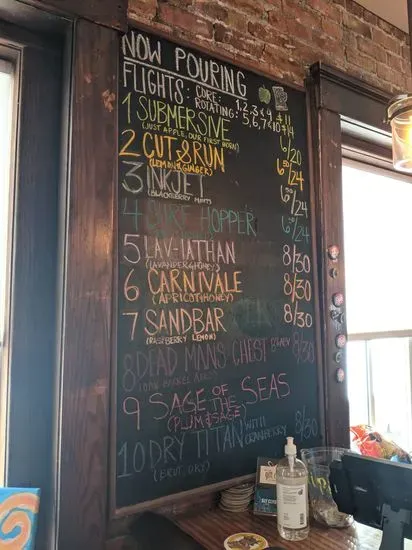 NOW POURING
FLIGHTS: CORE: 1, 2, 3 & 4
ROTATING: 5, 6, 7 & 10
1 SUBMERSIVE 6/20
(JUST APPLE, OUR FIRST BORN)
2 CUT & RUN 6⁵⁰/24
(LEMON & GINGER)
3 INKJET 6⁵⁰/24
(BLACKBERRY MINT)
4 HOPPER 6⁵⁰/24
5 LAV-IATHAN 8/30
(LAVANDER & HONEY)
6 CARNIVALE 8/30
(APRICOT & HONEY)
7 SANDBAR 8/30
(RASPBERRY LEMON)
8 DEAD MANS CHEST 8/30
BARREL AGED
9 SAGE OF THE SEAS
(PLUM & SAGE)
10 DRY TITAN WITH CRANBERRY 8/30
(BRUT, DRY)